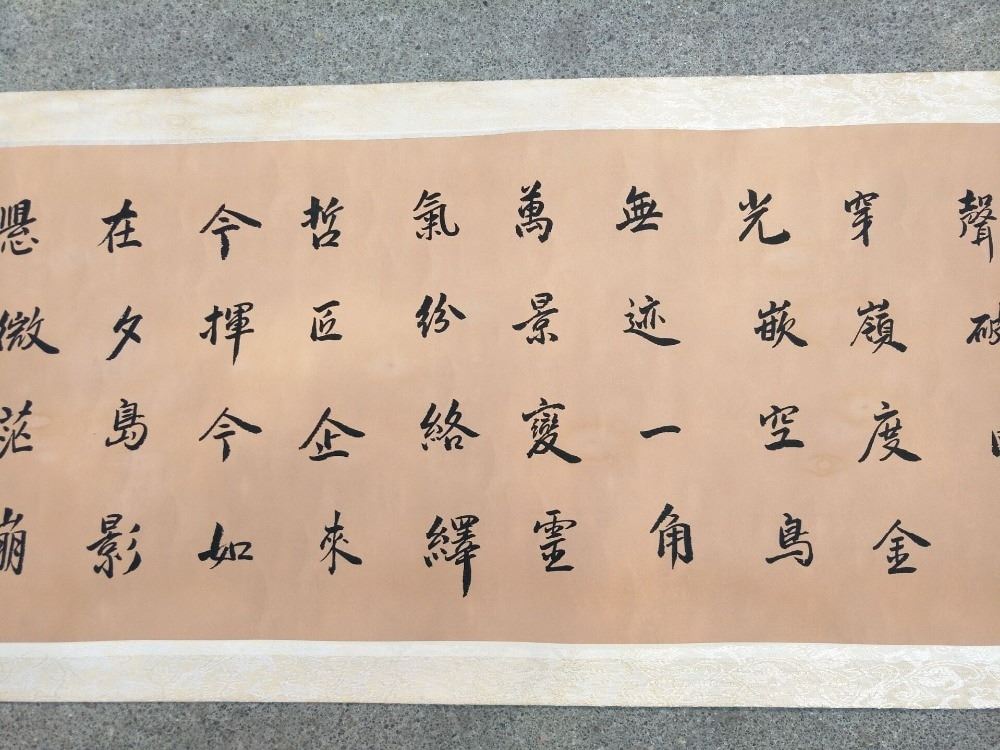 聲破
穿嶺度金
光嵌空鳥
無迹一角
萬景變靈
氣紛絡繹
哲匠企來
今揮今如
在夕島影
微茫崩